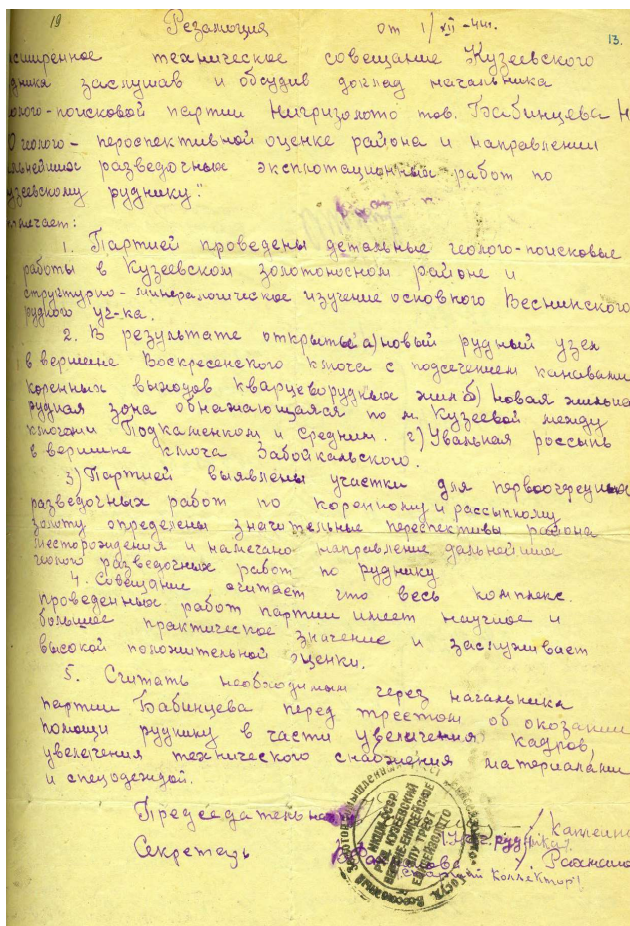 19
Резолюция от 1/XII-44г.
13.
сширенное техническое совещание Кузеевского
дника заслушав и обсудив доклад начальника
олого-поисковой партии Нигризолото тов. Бабинцева Н
О геолого-пероспективной оценке района и направлении
льнейших разведочных эксплотационных работ по
узеевскому руднику."
мечает:
1. Партией проведены детальные геолого-поисковые
работы в Кузеевском золотоносном районе и
структурно-минералогическое изучение основного Веснинского
рудного уч-ка.
2. В результате открыты а) новый рудный узел
в вершине Воскресенского ключа с подсечением канавами
коренных выходов кварцеворудных жил б) новая жильна
рудная зона обнажающаяся по м. Кузеевой между
ключами Подкаменком и Средним. г) Увальная россыпь
в вершине ключа Забайкальского.
3) Партией выявлены участки для первоочередных
разведочных работ по коренному и рассыпному
золоту определены значительные перспективы района
месторождения и намечано направление дальнейших
геолого разведочных работ по руднику
4. Совещание считает что весь комплекс
проведенных работ партии имеет научное и
большое практическое значение и заслуживает
высокой положительной оценки.
5. Считать необходимым через начальника
партии Бабинцева перед трестом об оказании
помощи руднику в части увеличения кадров,
увеличения технического снабжения материалами
и спецодеждой.
Председатель
Нач. рудника
Секретарь
Старший коллектор